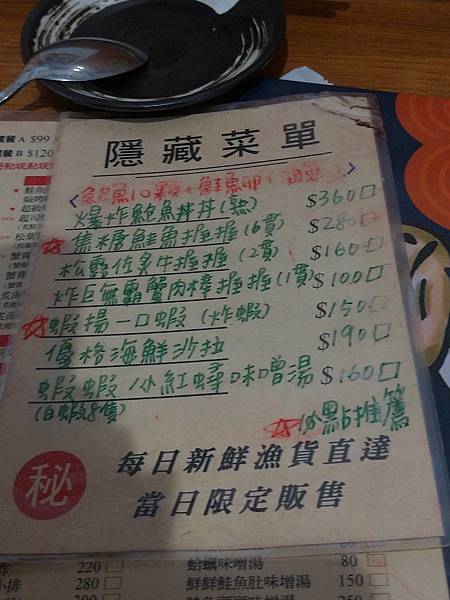 餐 A $99
餐 B $120
隱藏菜單
鮑魚10顆+鮭魚卵+海膽
爆炸鮑魚丼丼(熟) $360
焦糖鮭魚握握(6貫) $280
松露佐炙牛握握(2貫) $160
炸巨無霸蟹肉棒握握(1貫) $100
蝦揚一口蝦(炸蝦) $150
優格海鮮沙拉 $190
蝦蝦/小紅蟳味噌湯 $160
(白蝦8隻)
必點推薦
秘
每日新鮮漁貨直達
當日限定販售
炸 220
小排 280
300
蛤蠣味噌湯 80
鮮鮮鮭魚肚味增湯 150